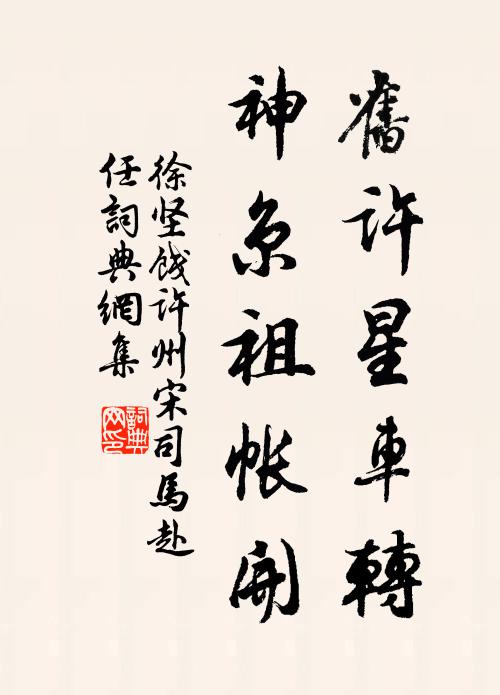 舊許星車轉
神京祖帳開
徐坚饯许州宋司馬赴
任詞典網集
詞典網印